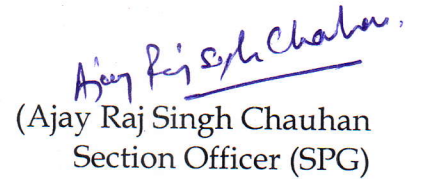 Ajay Raj Singh Chauhan.
(Ajay Raj Singh Chauhan
Section Officer (SPG)